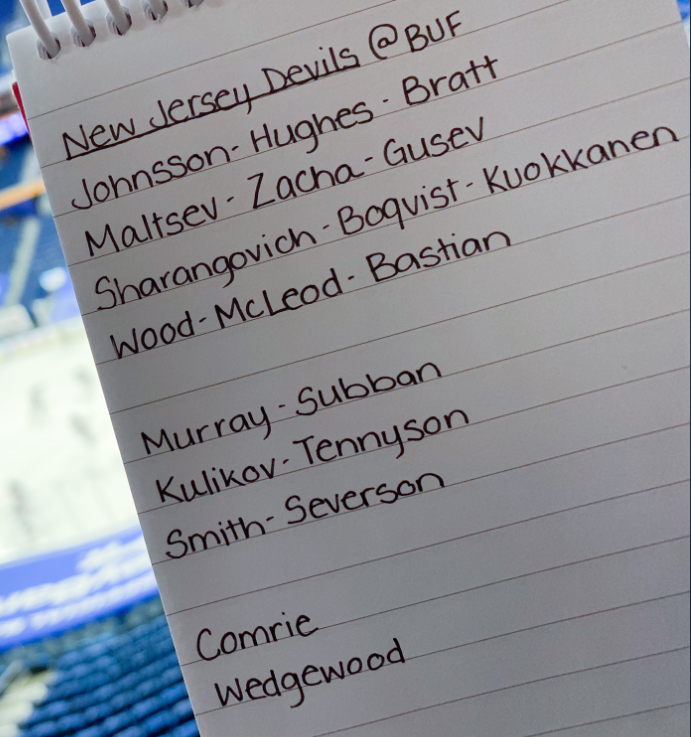 New Jersey Devils @BUF
Johnsson - Hughes - Bratt
Maltsev - Zacha - Gusev
Sharangovich - Boqvist - Kuokkanen
Wood - McLeod - Bastian
Murray - Subban
Kulikov - Tennyson
Smith - Severson
Comrie
Wedgewood